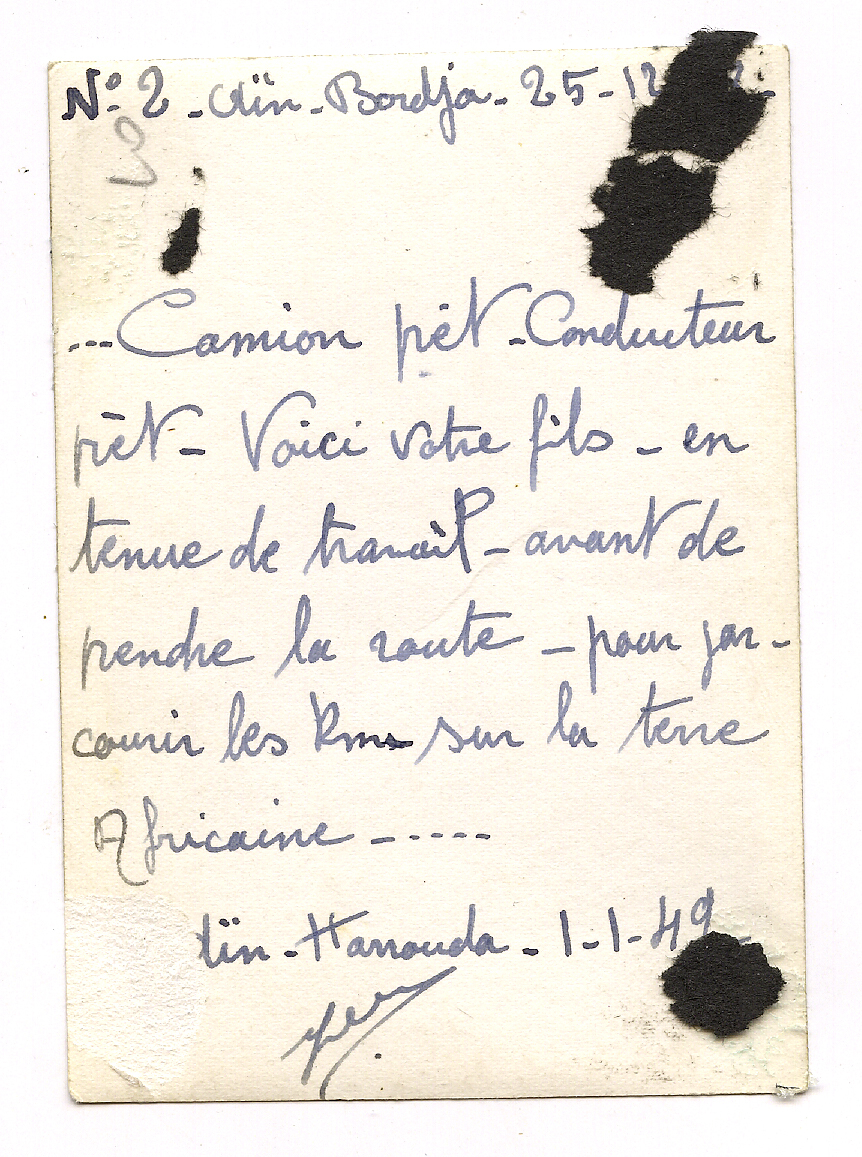 No. 2 - Aïn - Bordja - 25 - 12
... Camion prêt - Conducteur
prêt - Voici votre fils - en
tenue de travail - avant de
prendre la route - pour par-
courir les Kms sur la terre
Africaine - - - - -
ïn - Harrouda - 1 - 1 - 49